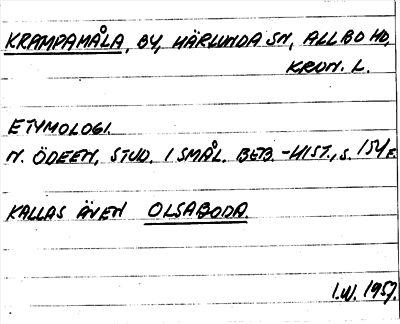 KRAMPAMÅLA, BY, HÄRLUNDA SN, ALLBO HD,
KRON. L.
ETYMOLOGI.
N. ÖDEEN, STUD. I SMÅL. BEB.-HIST., S. 154 F.
KALLAS ÄVEN OLSABODA
I.W. 1957.